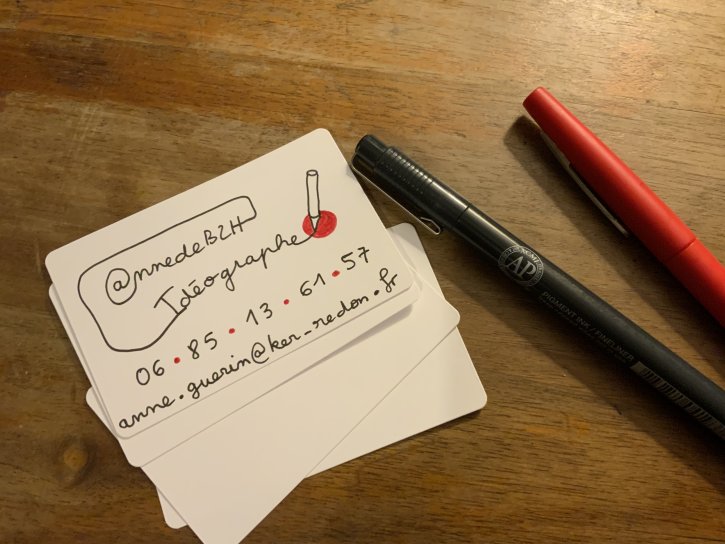 @nnedeBZH
Idéographe
06.85.13.61.57
anne.guerin@ker-redon.fr
AP
PIGMENT INK / FINELINER